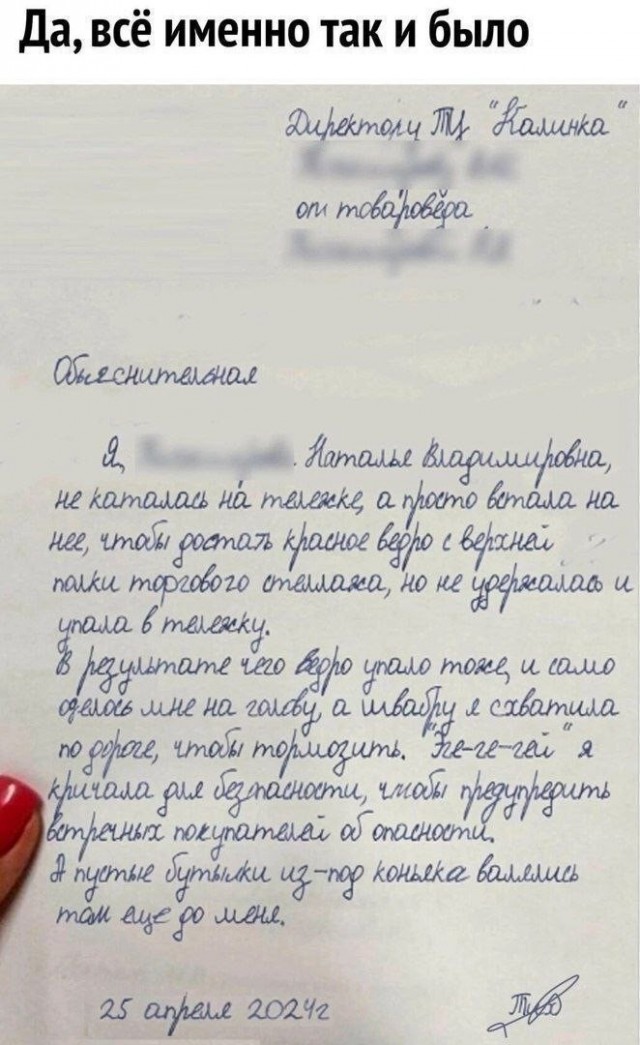 Да, всё именно так и было
Директору ТЦ "Калинка"
от товароведа
Объяснительная
Я, Наталья Владимировна,
не каталась на тележке, а просто встала на
нее, чтобы достать красное ведро с верхней
полки торгового стеллажа, но не удержалась и
упала в тележку.
В результате чего ведро упало тоже, и само
оделось мне на голову, а швабру я схватила
по дороге, чтобы тормозить. "Йе-ге-гей" я
кричала для безпасности, чтобы предупредить
встречных покупателей об опасности.
А пустые бутылки из-под коньяка валялись
там еще до меня.
25 апреля 2024г